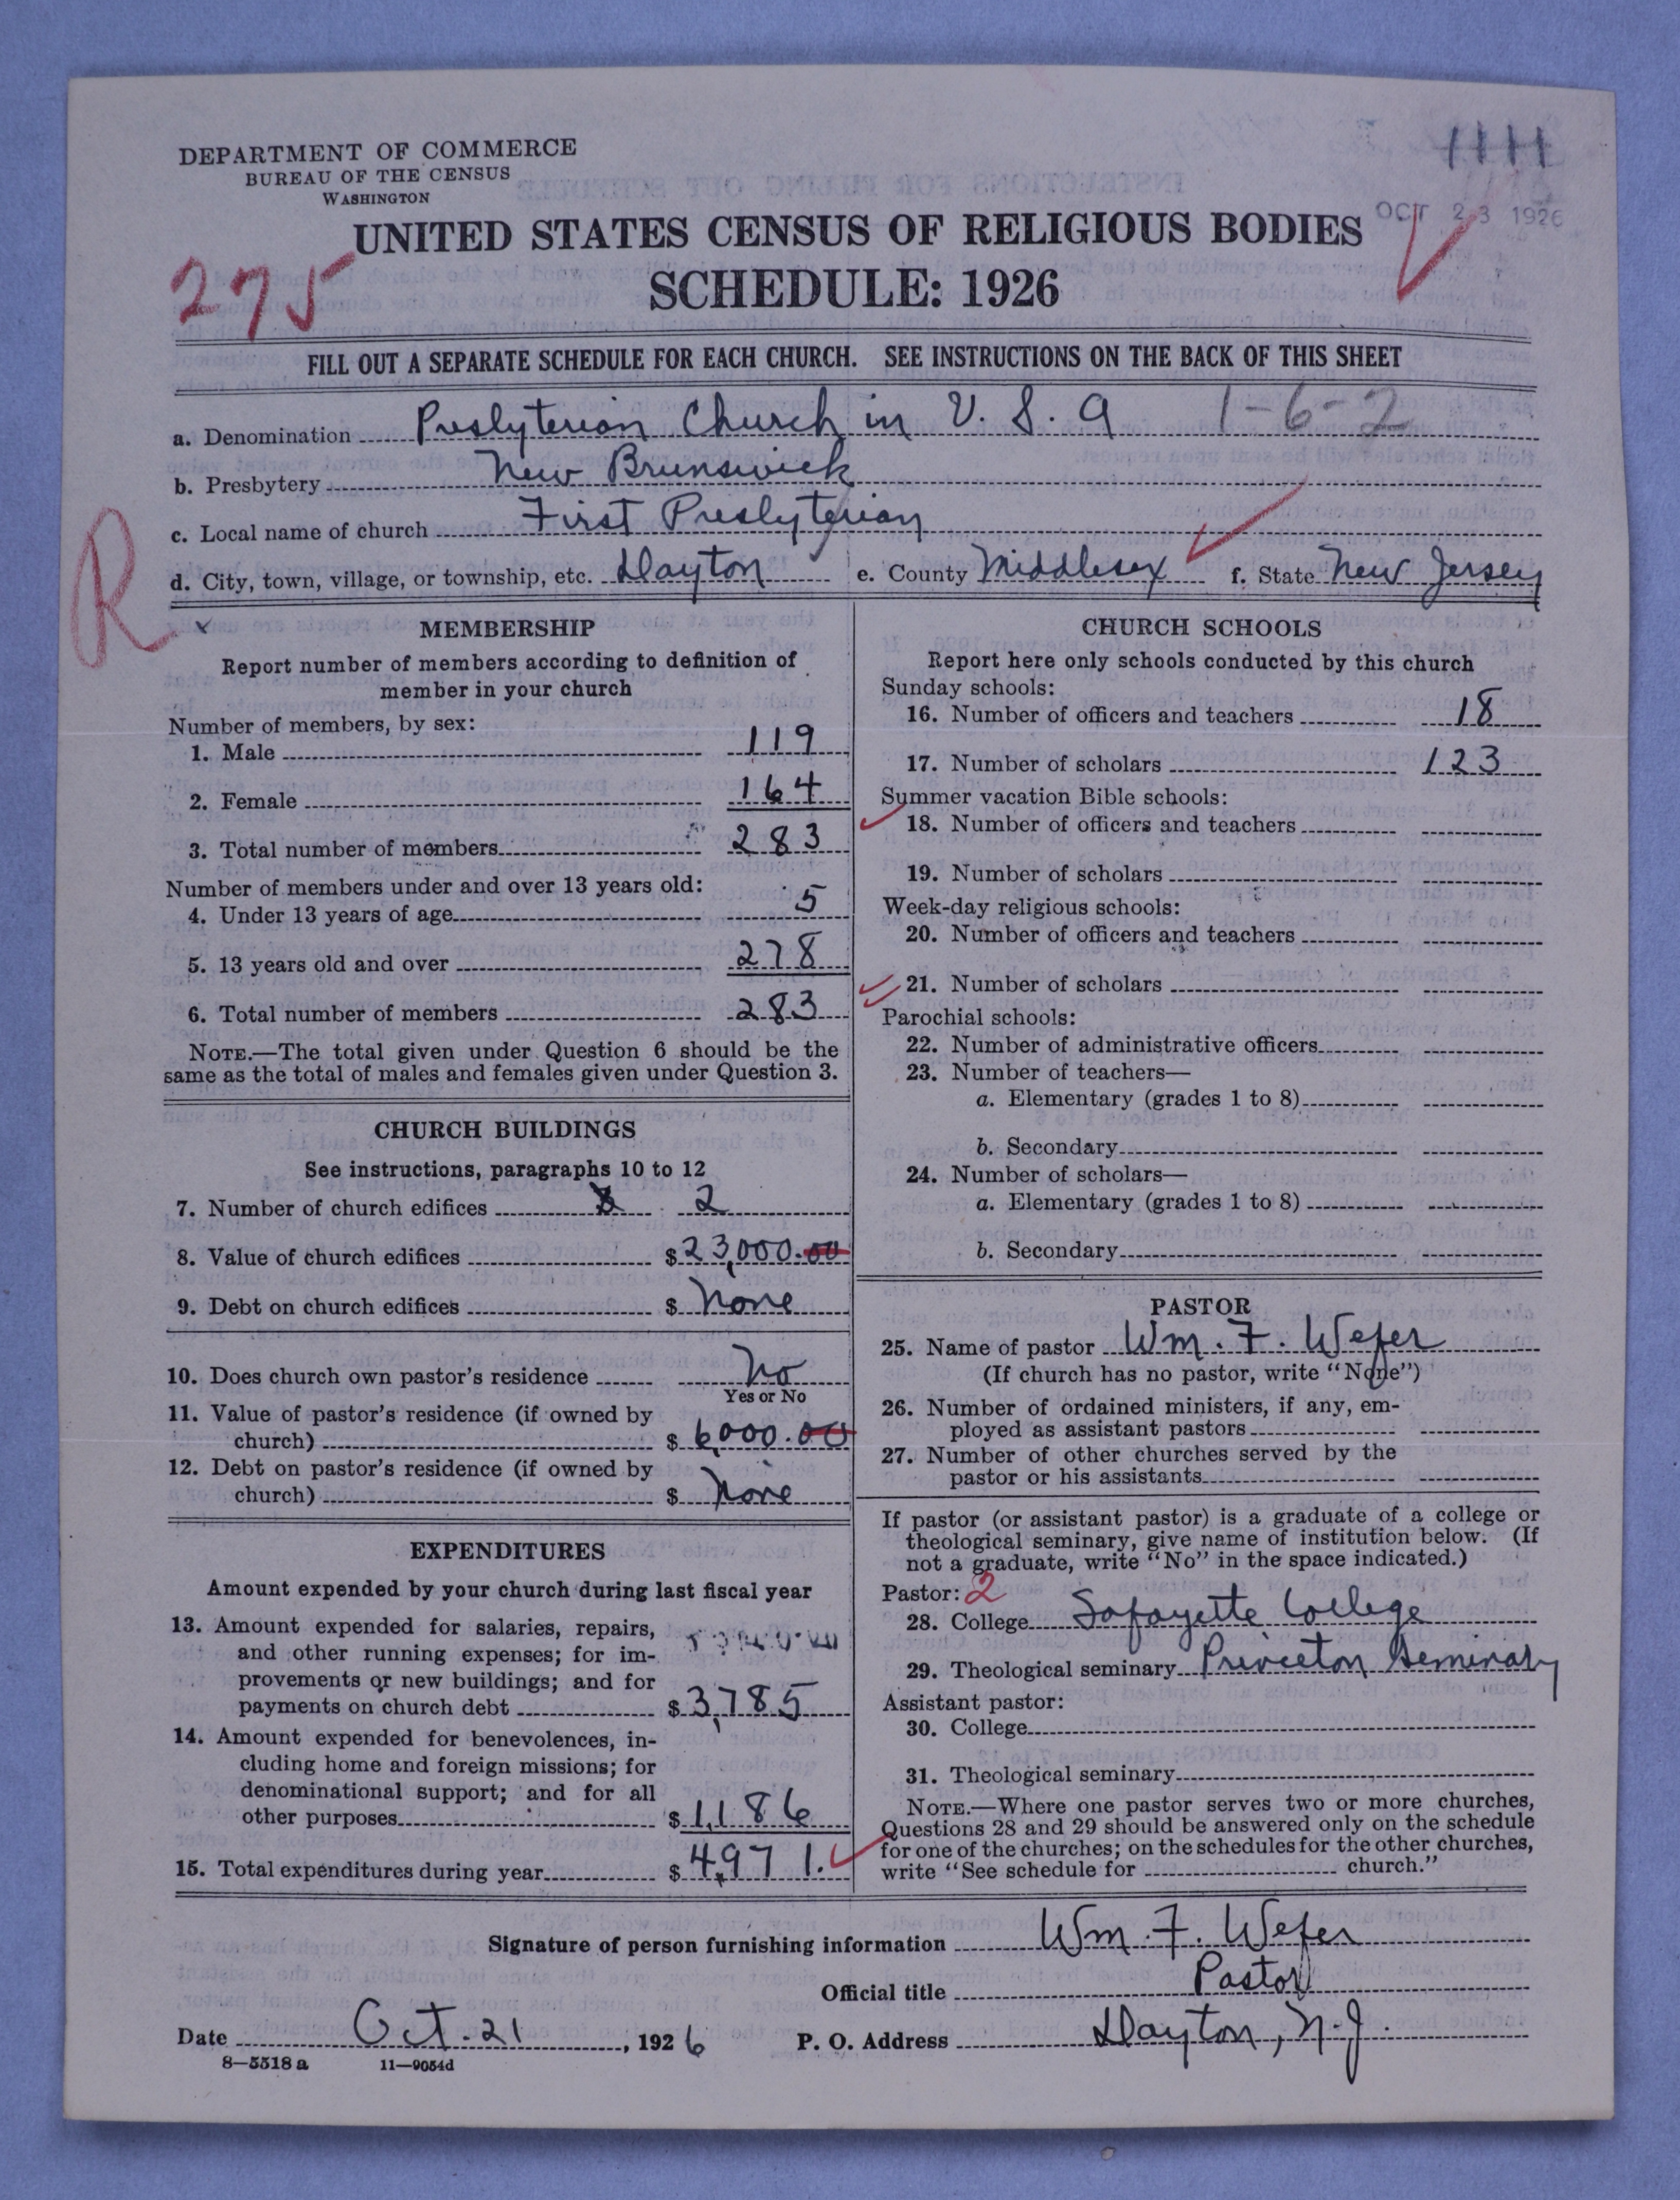 1111
DEPARTMENT OF COMMERCE
BUREAU OF THE CENSUS
WASHINGTON
OCT 23 1926
UNITED STATES CENSUS OF RELIGIOUS BODIES
SCHEDULE: 1926
275
FILL OUT A SEPARATE SCHEDULE FOR EACH CHURCH. SEE INSTRUCTIONS ON THE BACK OF THIS SHEET
a. Denomination Presbyterian Church in U. S. A 1-6-2
b. Presbytery New Brunswick
c. Local name of church First Presbyterian
d. City, town, village, or township, etc. Dayton e. County Middlesex f. State New Jersey
R
MEMBERSHIP
Report number of members according to definition of
member in your church
Number of members, by sex:
1. Male 119
2. Female 164
3. Total number of members 283
Number of members under and over 13 years old:
4. Under 13 years of age 5
5. 13 years old and over 278
6. Total number of members 283
NOTE.—The total given under Question 6 should be the
same as the total of males and females given under Question 3.
CHURCH BUILDINGS
See instructions, paragraphs 10 to 12
7. Number of church edifices 2
8. Value of church edifices $23,000.00
9. Debt on church edifices $ None
10. Does church own pastor's residence No
Yes or No
11. Value of pastor's residence (if owned by
church) $6,000.00
12. Debt on pastor's residence (if owned by
church) $ None
EXPENDITURES
Amount expended by your church during last fiscal year
13. Amount expended for salaries, repairs,
and other running expenses; for im-
provements or new buildings; and for
payments on church debt $3,785
14. Amount expended for benevolences, in-
cluding home and foreign missions; for
denominational support; and for all
other purposes $1,186
15. Total expenditures during year $4,971.
CHURCH SCHOOLS
Report here only schools conducted by this church
Sunday schools:
16. Number of officers and teachers 18
17. Number of scholars 123
Summer vacation Bible schools:
18. Number of officers and teachers
19. Number of scholars
Week-day religious schools:
20. Number of officers and teachers
21. Number of scholars
Parochial schools:
22. Number of administrative officers
23. Number of teachers—
a. Elementary (grades 1 to 8)
b. Secondary
24. Number of scholars—
a. Elementary (grades 1 to 8)
b. Secondary
PASTOR
25. Name of pastor Wm. F. Wefer
(If church has no pastor, write "None")
26. Number of ordained ministers, if any, em-
ployed as assistant pastors
27. Number of other churches served by the
pastor or his assistants
If pastor (or assistant pastor) is a graduate of a college or
theological seminary, give name of institution below. (If
not a graduate, write "No" in the space indicated.)
Pastor: 2
28. College Lafayette College
29. Theological seminary Princeton Seminary
Assistant pastor:
30. College
31. Theological seminary
NOTE.—Where one pastor serves two or more churches,
Questions 28 and 29 should be answered only on the schedule
for one of the churches; on the schedules for the other churches,
write "See schedule for church."
Signature of person furnishing information Wm. F. Wefer
Official title Pastor
Date Oct. 21, 1926 P. O. Address Dayton, N. J.
8—5518 a 11—9054d